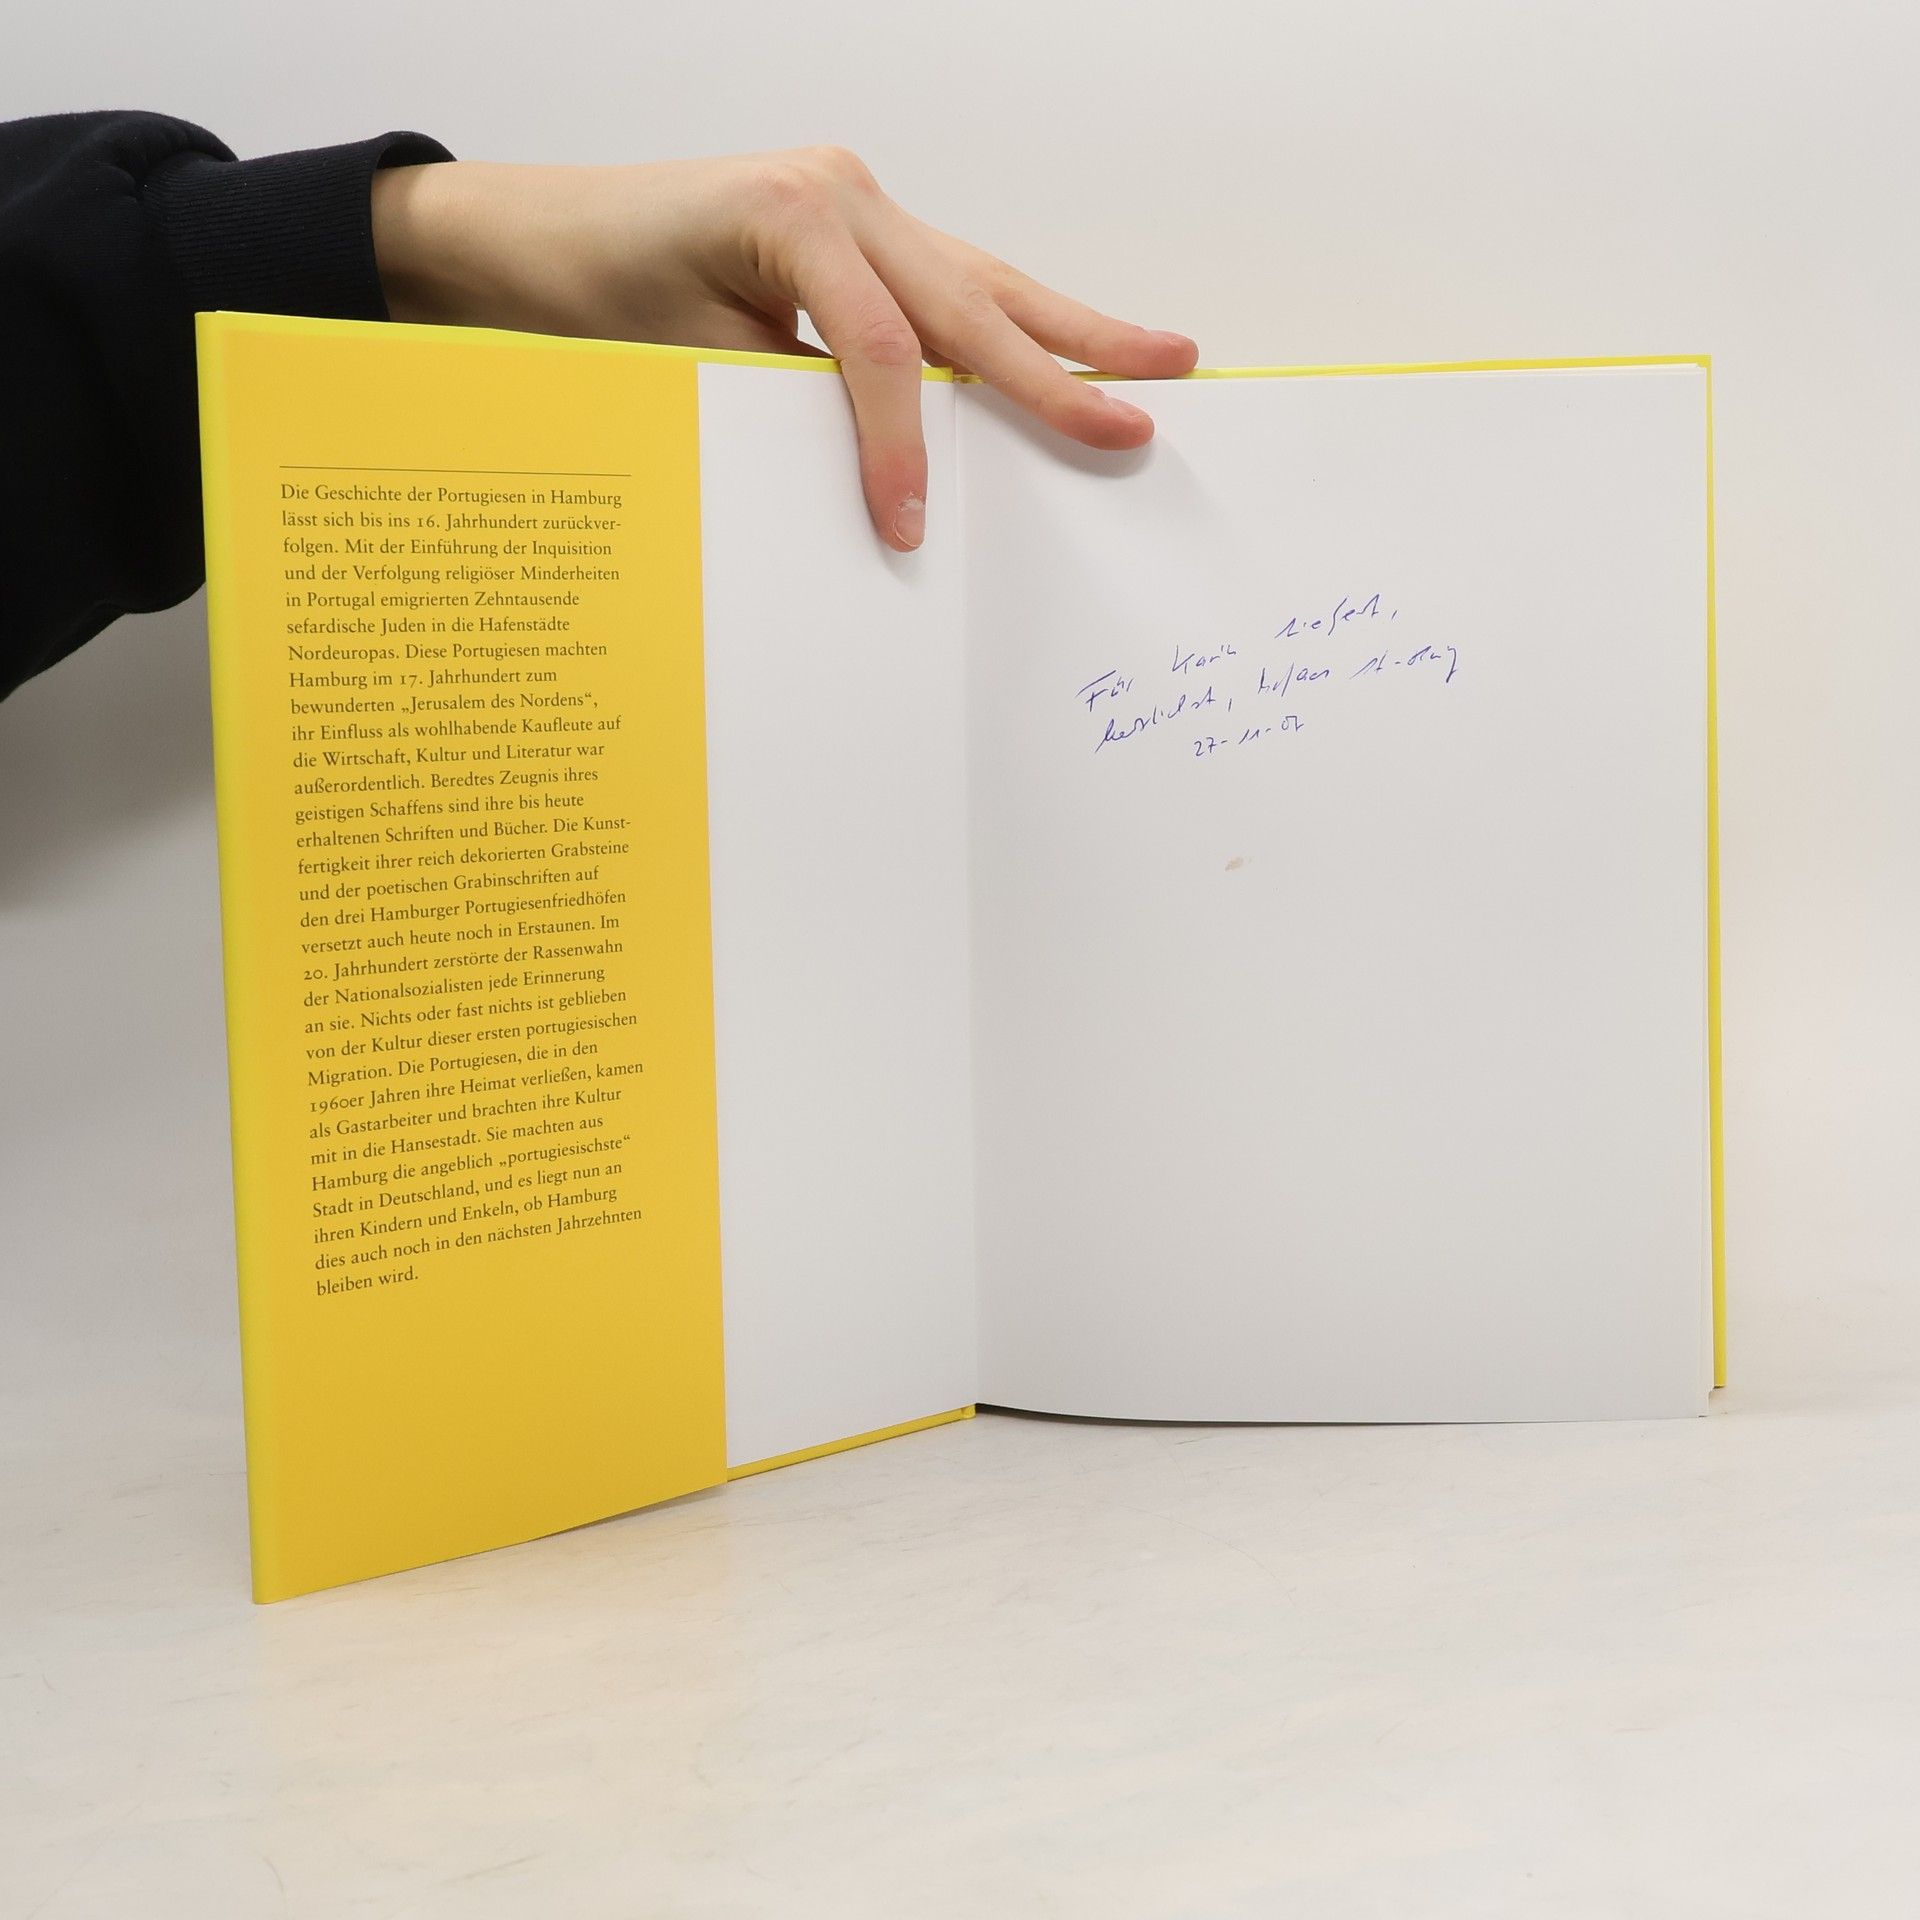 Die Geschichte der Portugiesen in Hamburg
lässt sich bis ins 16. Jahrhundert zurückver-
folgen. Mit der Einführung der Inquisition
und der Verfolgung religiöser Minderheiten
in Portugal emigrierten Zehntausende
sefardische Juden in die Hafenstädte
Nordeuropas. Diese Portugiesen machten
Hamburg im 17. Jahrhundert zum
bewunderten „Jerusalem des Nordens“,
ihr Einfluss als wohlhabende Kaufleute auf
die Wirtschaft, Kultur und Literatur war
außerordentlich. Beredtes Zeugnis ihres
geistigen Schaffens sind ihre bis heute
erhaltenen Schriften und Bücher. Die Kunst-
fertigkeit ihrer reich dekorierten Grabsteine
und der poetischen Grabinschriften auf
den drei Hamburger Portugiesenfriedhöfen
versetzt auch heute noch in Erstaunen. Im
20. Jahrhundert zerstörte der Rassenwahn
der Nationalsozialisten jede Erinnerung
an sie. Nichts oder fast nichts ist geblieben
von der Kultur dieser ersten portugiesischen
Migration. Die Portugiesen, die in den
1960er Jahren ihre Heimat verließen, kamen
als Gastarbeiter und brachten ihre Kultur
mit in die Hansestadt. Sie machten aus
Hamburg die angeblich „portugiesischste“
Stadt in Deutschland, und es liegt nun an
ihren Kindern und Enkeln, ob Hamburg
dies auch noch in den nächsten Jahrzehnten
bleiben wird.
Für Karin
herzlichst,
27-11-07